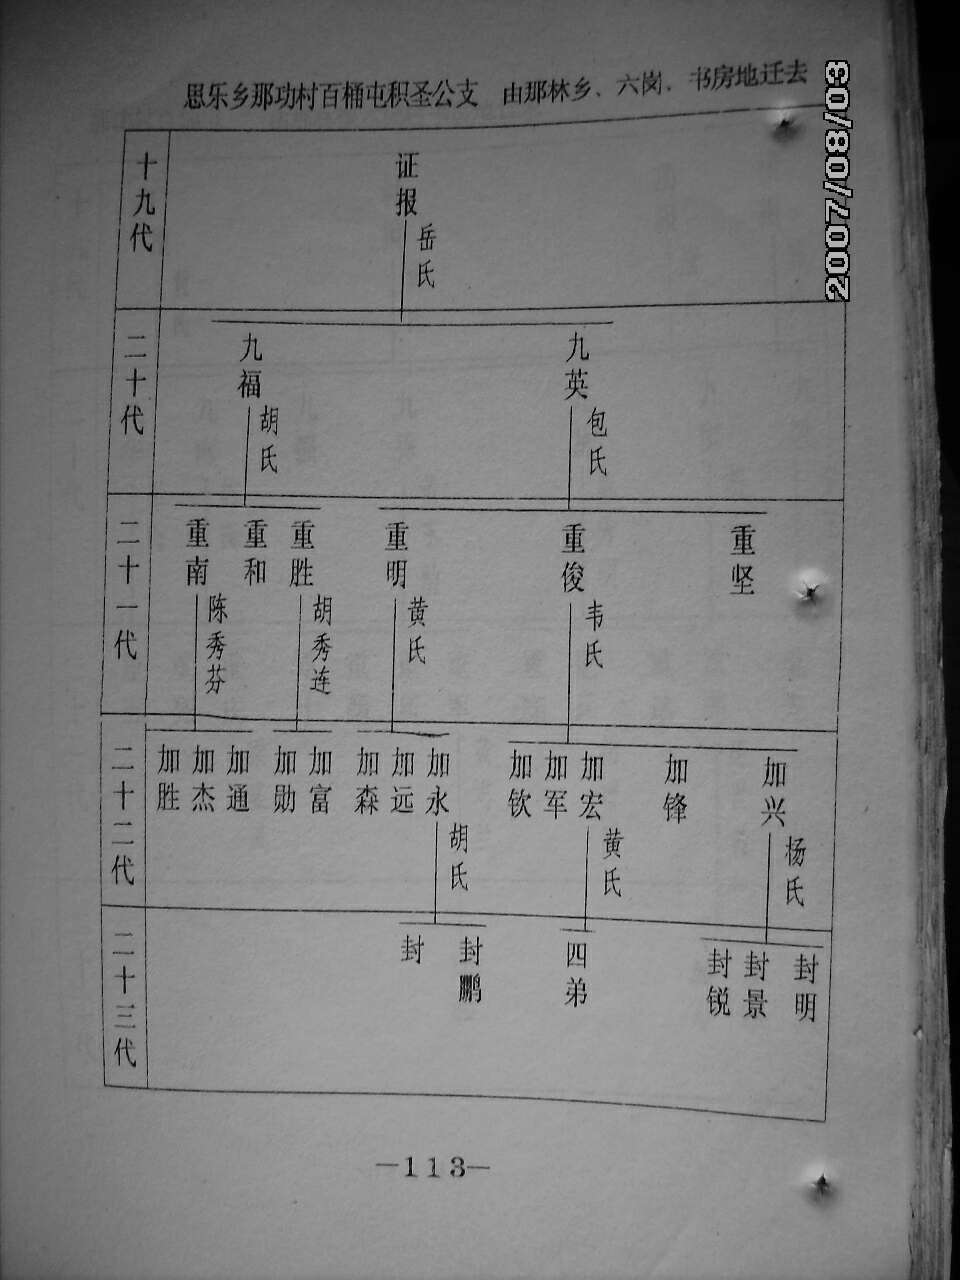 思乐乡那功村百桶屯积圣公支 由那林乡、六岗、书房地迁去
2007/08/03
十九代
证报
岳氏
二十代
九福
胡氏
九英
包氏
二十一代
重南
陈秀芬
重和
重胜
胡秀连
重明
黄氏
重俊
韦氏
重坚
二十二代
加胜
加杰
加通
加勋
加富
加森
加远
加永
胡氏
加钦
加军
加宏
黄氏
加锋
加兴
杨氏
二十三代
封
封鹏
四弟
封锐
封景
封明
—113—